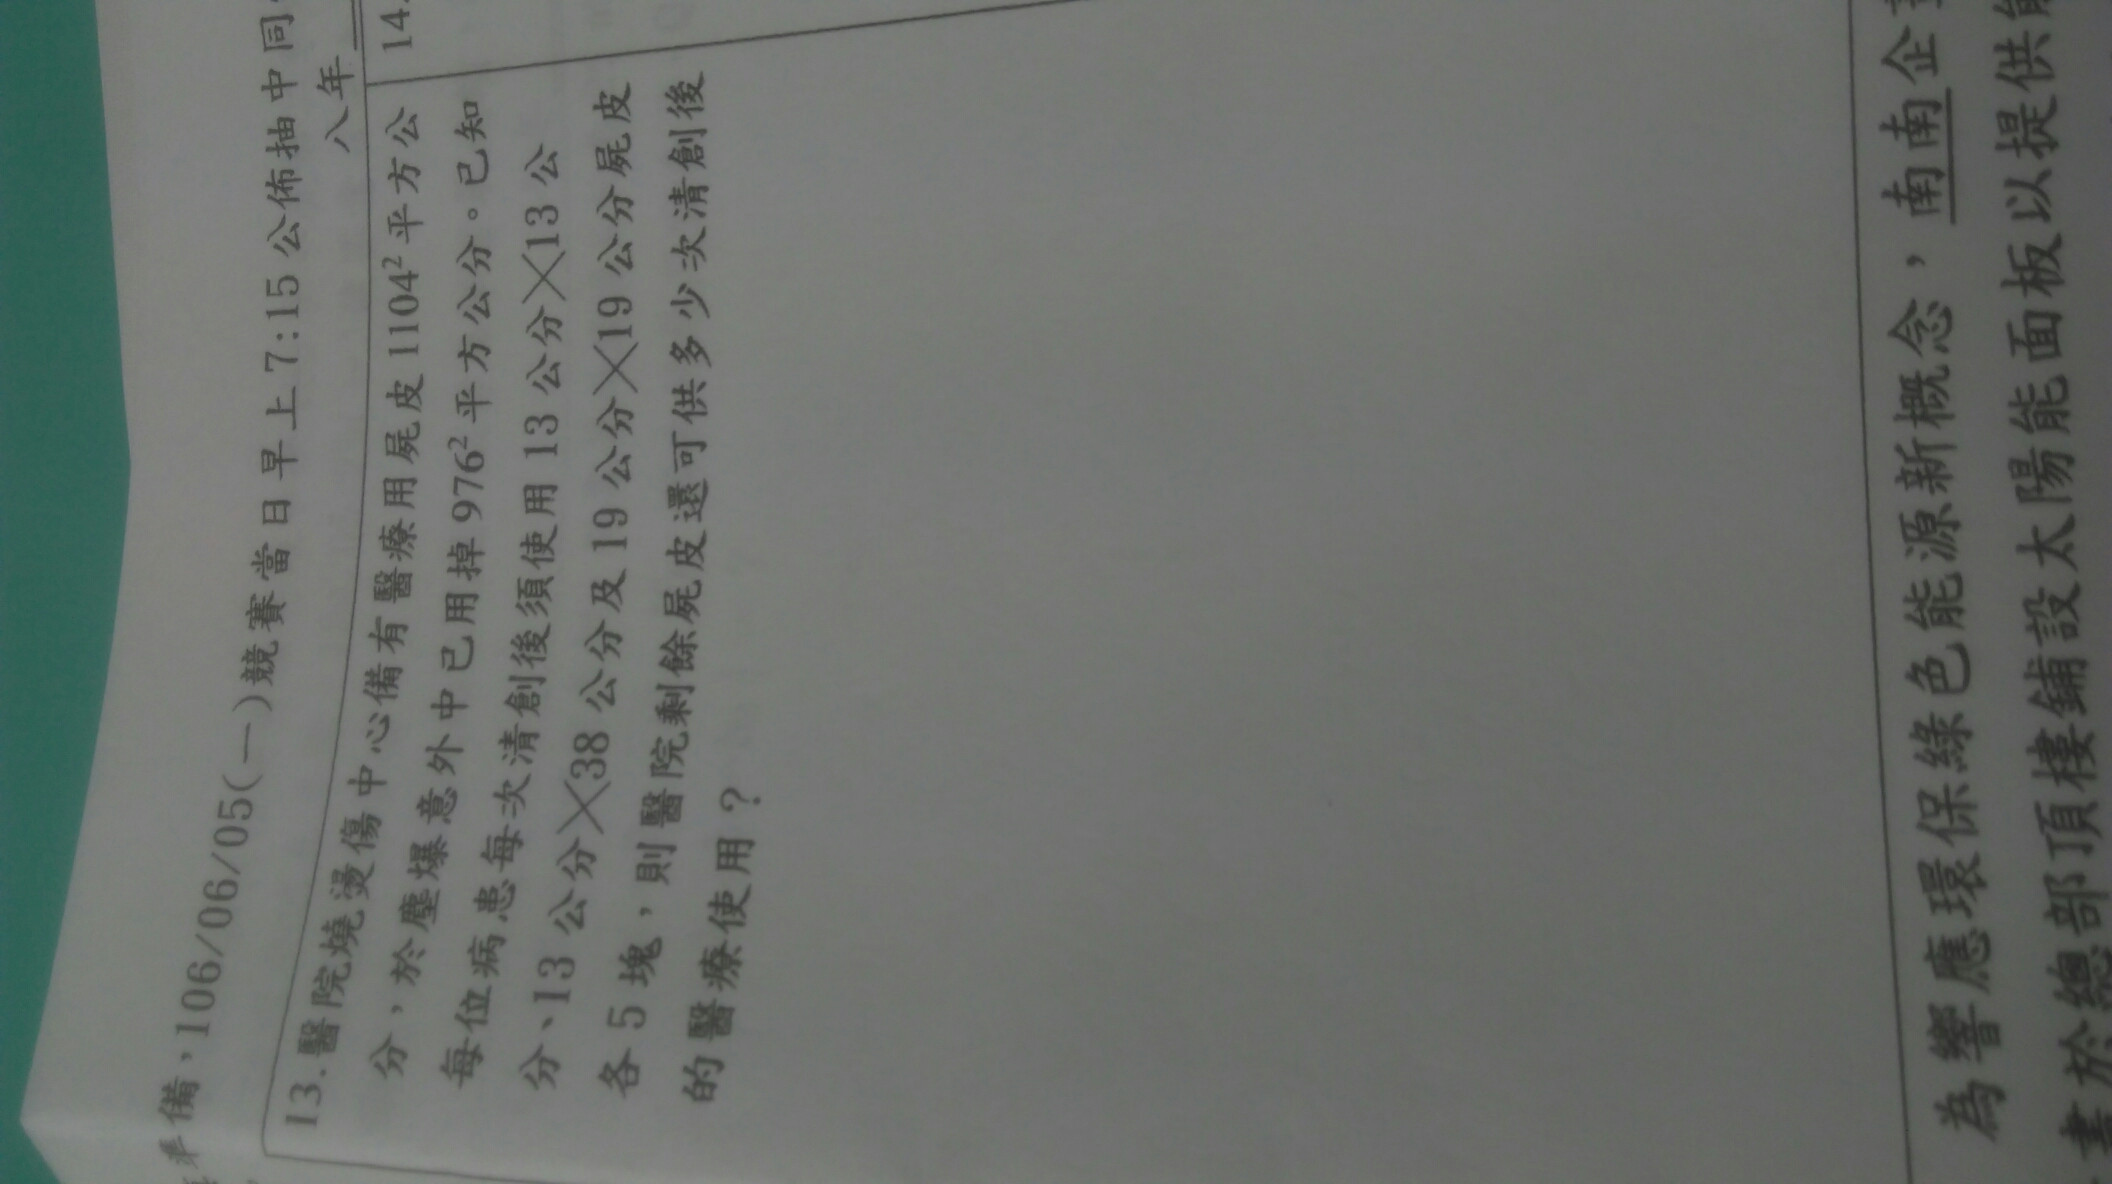 準備，106/06/05(一)競賽當日早上7:15公佈抽中同
八年
14.
13.醫院燒燙傷中心備有醫療用屍皮1104²平方公
分，於塵爆意外中已用掉976²平方公分。已知
每位病患每次清創後須使用13公分×13公
分、13公分×38公分及19公分×19公分屍皮
各5塊，則醫院剩餘屍皮還可供多少次清創後
的醫療使用？
為響應環保綠色能源新概念，南南企
書於總部頂樓鋪設太陽能面板以提供能